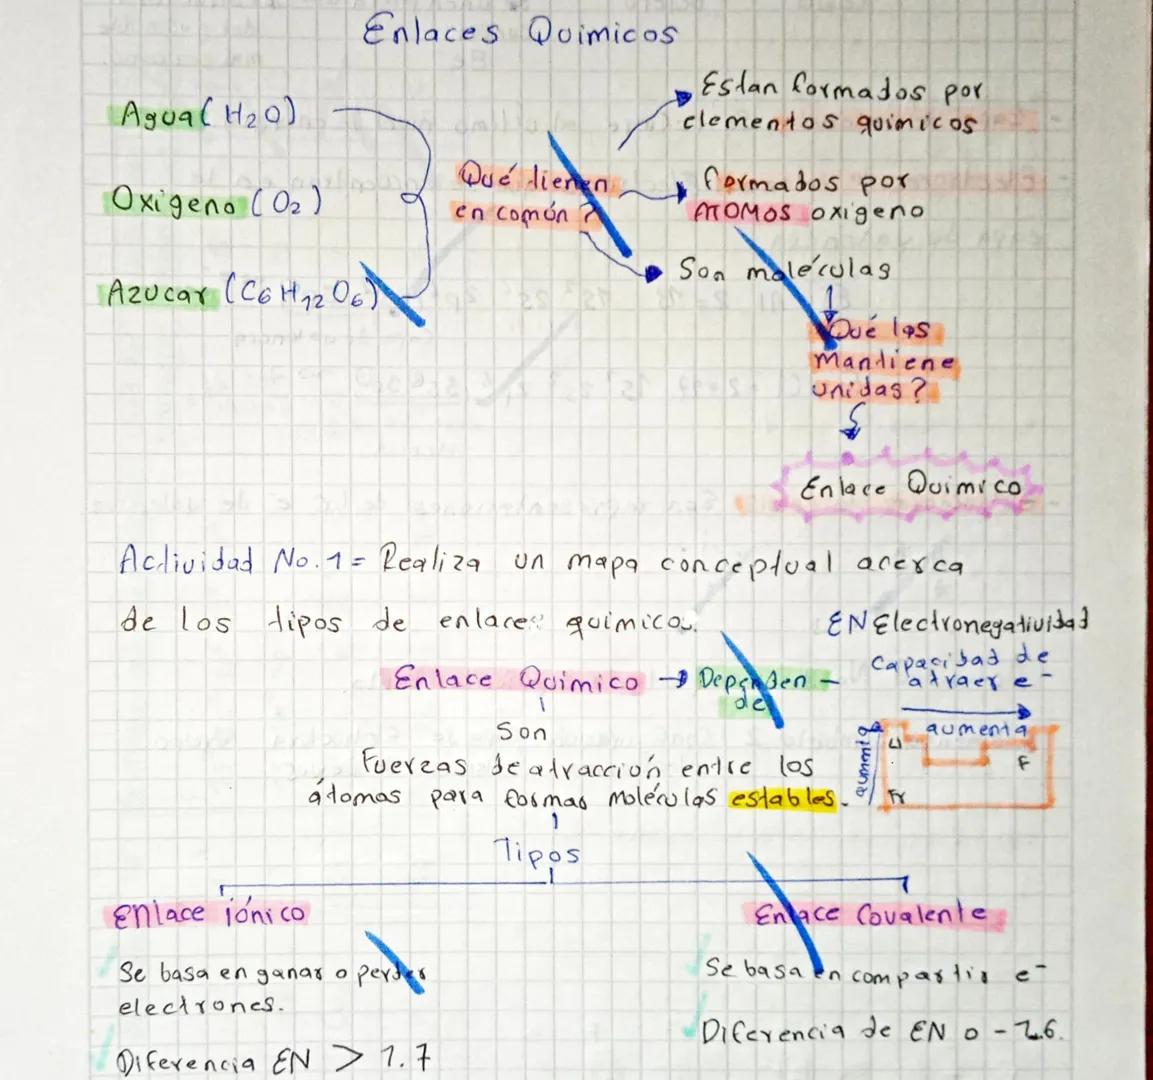 Enlaces Quimicos
Agua (H2O)
Oxigeno (O2)
Azucar (C6H12O6)
Qué tienen
en común?
Estan formados por
elementos quimicos
formados por
ATOMOS oxigeno
Son moléculas
Qué las
mantiene
unidas?
Enlace Quimico
Actividad No.1= Realiza un mapa conceptual acerca
de los tipos de enlaces quimicos.
EN Electronegatividad
Capacidad de
atraer e-
aumenta
aumenta
Li
F
Fr
Enlace Quimico → Dependen -
de
Son
Fuerzas de atracción entre los
átomos para formar moléculas estables.
Tipos
Enlace iónico
Se basa en ganar o perder
electrones.
Diferencia EN > 1.7
Enlace Covalente
Se basa en compartir e-
Diferencia de EN 0 - 1.6.